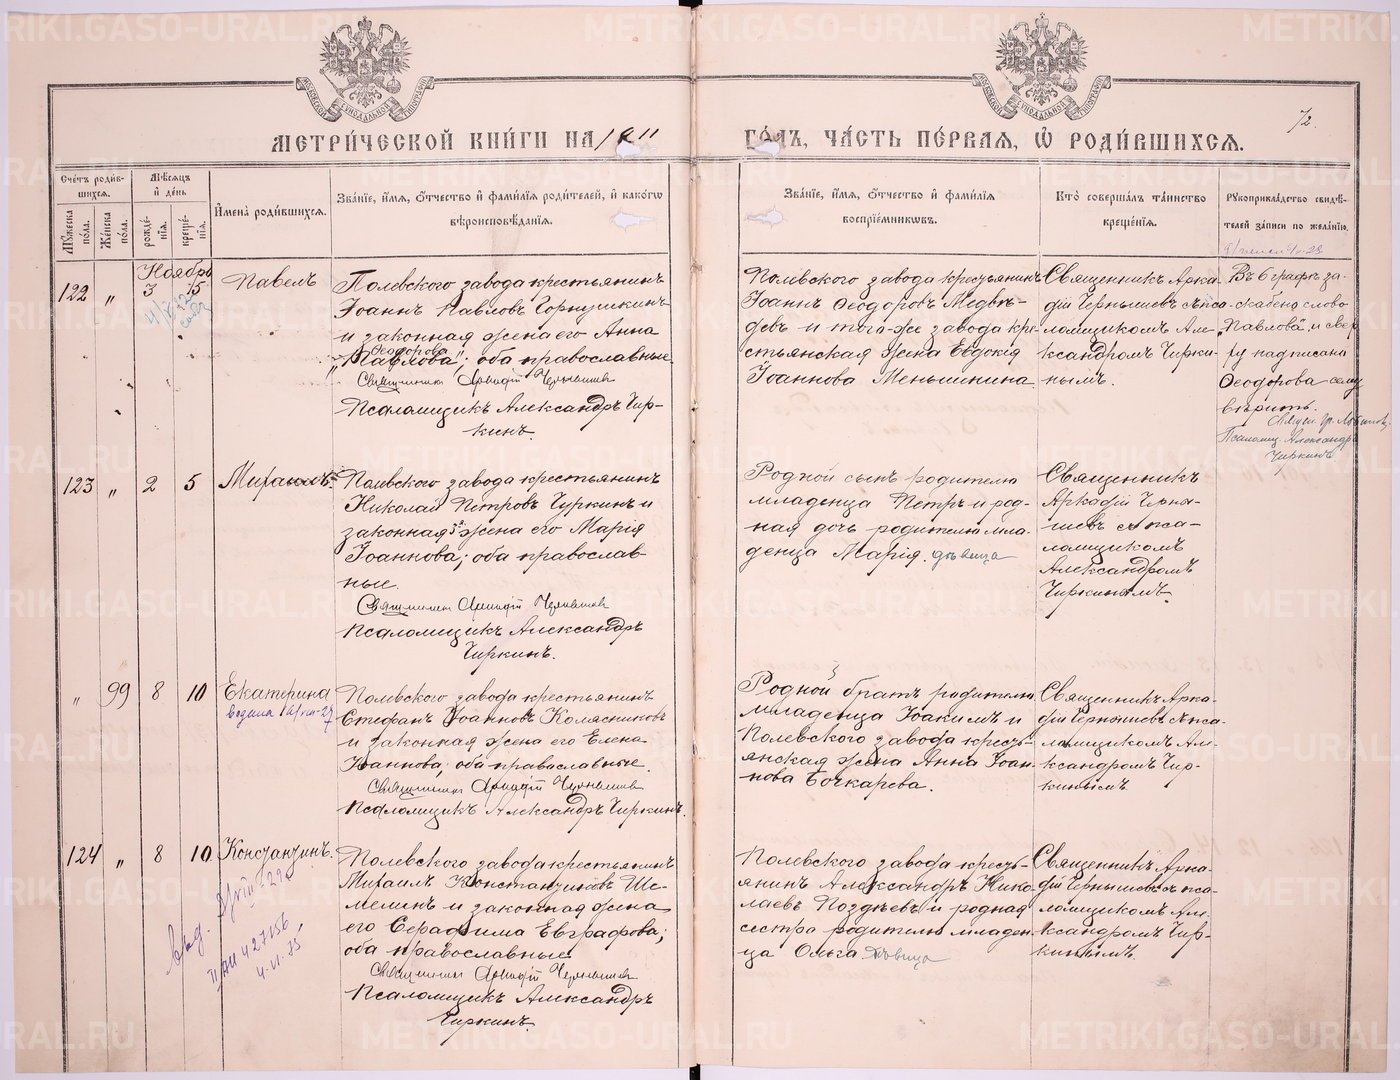 МЕТРИ́ЧЕСКОЙ КНИ́ГИ НА 1911
ГО́ДЪ, ЧА́СТЬ ПЕ́РВАЯ, Ѡ҆ РОДИ́ВШИХСѦ.
72.
Сче́тъ роди́в-
шихсѧ.
Мꙋ́жеска по́ла.
Же́нска по́ла.
Мѣ́сѧцъ
и҆ де́нь
рожде́-
нїѧ.
креще́-
нїѧ.
И҆мена̀ роди́вшихсѧ.
Зва́нїе, и҆́мѧ, ѻ҆́тчество и҆ фами́лїѧ роди́телей, и҆ како́гѡ
вѣроисповѣ́данїѧ.
Зва́нїе, и҆́мѧ, ѻ҆́тчество и҆ фами́лїѧ
воспрїе́мникѡвъ.
Кто̀ соверша́лъ та́инство
креще́нїѧ.
Рꙋкоприкла́дство свидѣ́-
телей за́писи по жела́нїю.
Ноябрь
122 „ 3 15
Павелъ
Полевского завода крестьянинъ
Іоаннъ Павловъ Горнушкинъ
и законная жена его Анна
Ѳеодорова
„Павлова“; оба православные.
Священникъ Аркадій Чернышевъ
Псаломщикъ Александръ Чир-
кинъ.
Полевского завода крестьянинъ
Іоаннъ Ѳеодоровъ Медвѣ-
девъ и того-же завода кре-
стьянская жена Евдокія
Іоаннова Меньшикина.
Священникъ Арка-
дій Чернышевъ съ пса-
ломщикомъ Але-
ксандромъ Чирки-
нымъ.
Въ 6 графѣ за-
скабено слово
„Павлова“, и свер-
ху надписано
Ѳеодорова сему
вѣрить.
Псаломщ. Александръ
Чиркинъ
123 „ 2 5
Михаилъ.
Полевского завода крестьянинъ
Николай Петровъ Чиркинъ и
законная жена его Марія
Іоаннова; оба православ-
ные.
Священникъ Аркадій Чернышевъ
Псаломщикъ Александръ
Чиркинъ.
Родной сынъ родителю
младенца Петръ и род-
ная дочь родителю мла-
денца Марія. дѣвица
Священникъ
Аркадій Черны-
шевъ съ пса-
ломщикомъ
Александромъ
Чиркинымъ.
„ 99 8 10
Екатерина
Полевского завода крестьянинъ
Стефанъ Іоанновъ Колясниковъ
и законная жена его Елена
Іоаннова; оба православные.
Священникъ Аркадій Чернышевъ
Псаломщикъ Александръ Чиркинъ.
Родной братъ родителю
младенца Іоакимъ и
Полевского завода кресть-
янская жена Анна Іоан-
нова Бочкарева.
Священникъ Арка-
дій Чернышевъ съ пса-
ломщикомъ Але-
ксандромъ Чир-
кинымъ
124 „ 8 10
Константинъ.
Полевского завода крестьянинъ
Михаилъ Константиновъ Ше-
мелинъ и законная жена
его Серафима Евграфова;
оба православные.
Священникъ Аркадій Чернышевъ
Псаломщикъ Александръ
Чиркинъ.
Полевского завода кресть-
янинъ Александръ Нико-
лаевъ Позднѣевъ и родная
сестра родителю младен-
ца Ольга дѣвица
Священникъ Арка-
дій Чернышевъ съ пса-
ломщикомъ Але-
ксандромъ Чир-
кинымъ.
METRIKI.GASO-URAL.RU